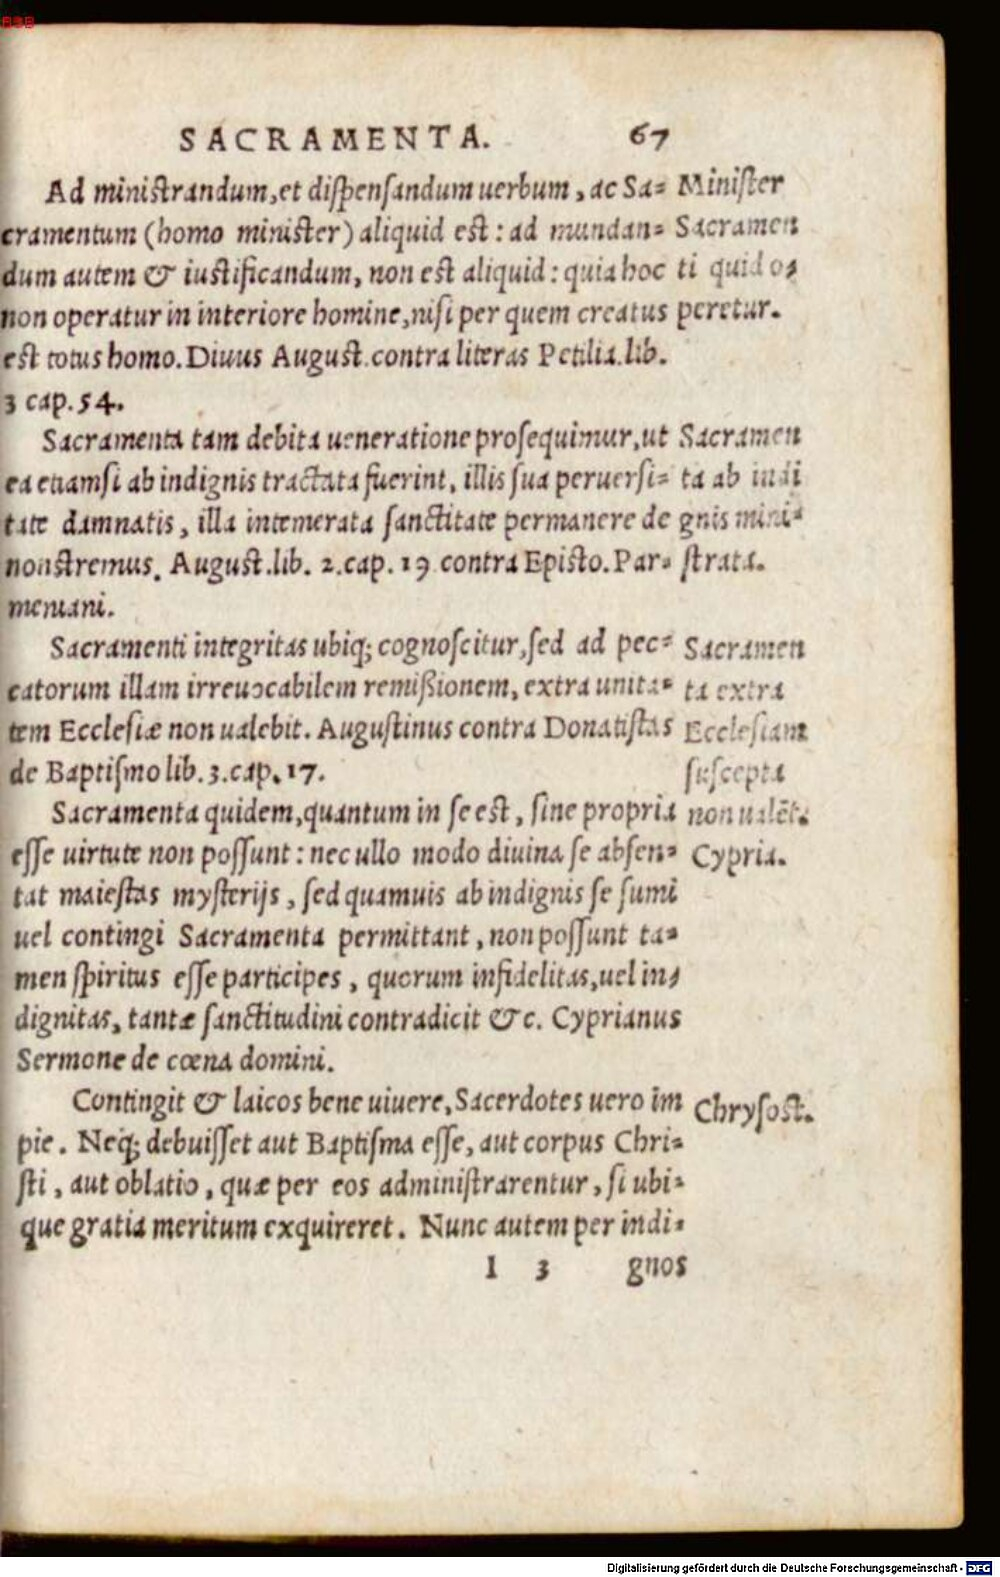 BSB
SACRAMENTA. 67
Ad ministrandum, et dispensandum uerbum, ac Sa=
cramentum (homo minister) aliquid est: ad mundan=
dum autem & iustificandum, non est aliquid: quia hoc
non operatur in interiore homine, nisi per quem creatus
est totus homo. Diuus August. contra literas Petilia. lib.
3 cap. 54.
Minister
Sacramen
ti quid o=
peretur.
Sacramenta tam debita ueneratione prosequimur, ut
ea etiamsi ab indignis tractata fuerint, illis sua peruersi=
tate damnatis, illa intemerata sanctitate permanere de
nonstremus. August. lib. 2. cap. 19 contra Episto. Par=
meniani.
Sacramen
ta ab indi
gnis mini=
strata.
Sacramenti integritas ubiq; cognoscitur, sed ad pec=
catorum illam irreuocabilem remißionem, extra unita=
tem Ecclesiæ non ualebit. Augustinus contra Donatistas
de Baptismo lib. 3. cap. 17.
Sacramen
ta extra
Ecclesiam
suscepta
non ualēt.
Sacramenta quidem, quantum in se est, sine propria
esse uirtute non possunt: nec ullo modo diuina se absen=
tat maiestas mysterijs, sed quamuis ab indignis se sumi
uel contingi Sacramenta permittant, non possunt ta=
men spiritus esse participes, quorum infidelitas, uel in=
dignitas, tantæ sanctitudini contradicit &c. Cyprianus
Sermone de cœna domini.
Cypria.
Contingit & laicos bene uiuere, Sacerdotes uero im
pie. Neq; debuisset aut Baptisma esse, aut corpus Chri=
sti, aut oblatio, quæ per eos administrarentur, si ubi=
que gratia meritum exquireret. Nunc autem per indi=
Chrysost.
I 3 gnos
Digitalisierung gefördert durch die Deutsche Forschungsgemeinschaft - DFG